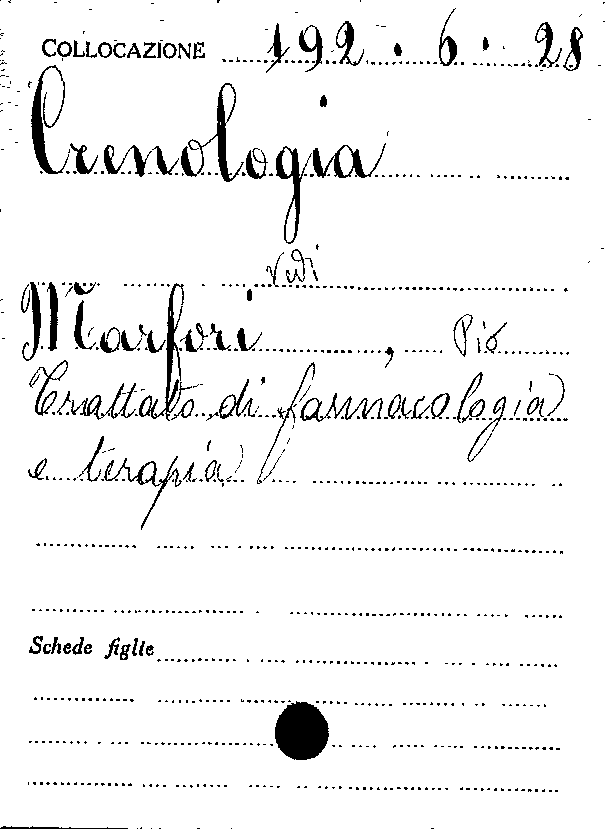 COLLOCAZIONE 192.6.28
Crenologia
Vidi
Marfori, Pio
Trattato di farmacologia
e terapia
Schede figlie